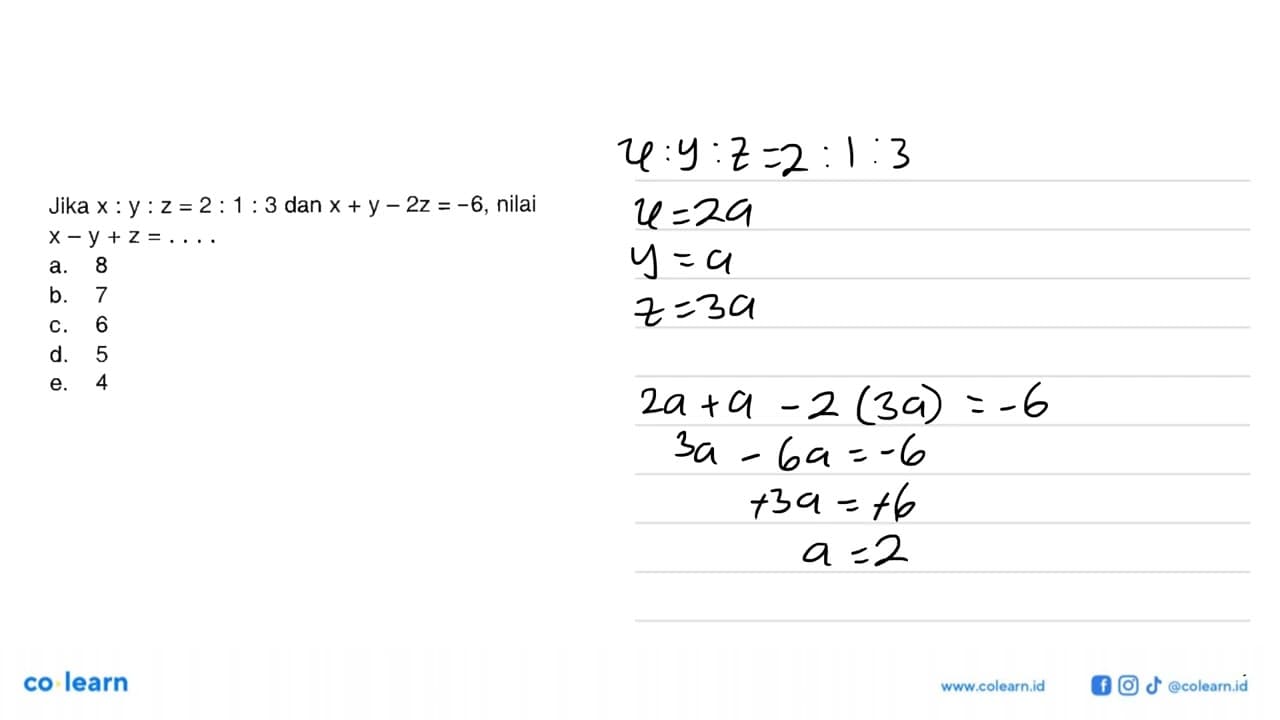 Jika x : y : z = 2 : 1 : 3 dan x + y – 2z = –6, nilai
x – y + z = . . . .
a. 8
b. 7
c. 6
d. 5
e. 4
x : y : z = 2 : 1 : 3
x = 2a
y = a
z = 3a
2a + a - 2 (3a) = -6
3a - 6a = -6
+3a = +6
a = 2
co learn
www.colearn.id
@colearn.id